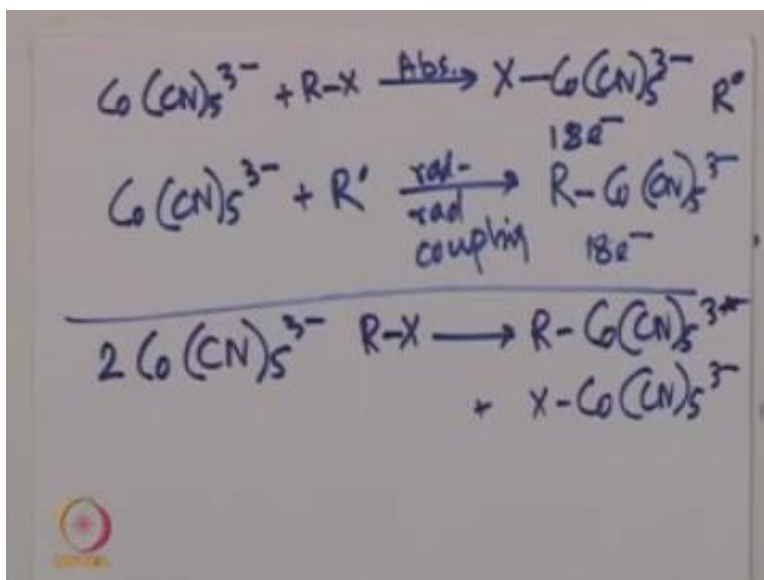 Co(CN)₅³⁻ + R-X —Abs.→ X-Co(CN)₅³⁻ R•
18e⁻
Co(CN)₅³⁻ + R• —rad-rad coupling→ R-Co(CN)₅³⁻
18e⁻
2 Co(CN)₅³⁻ R-X → R-Co(CN)₅³⁻
+ X-Co(CN)₅³⁻